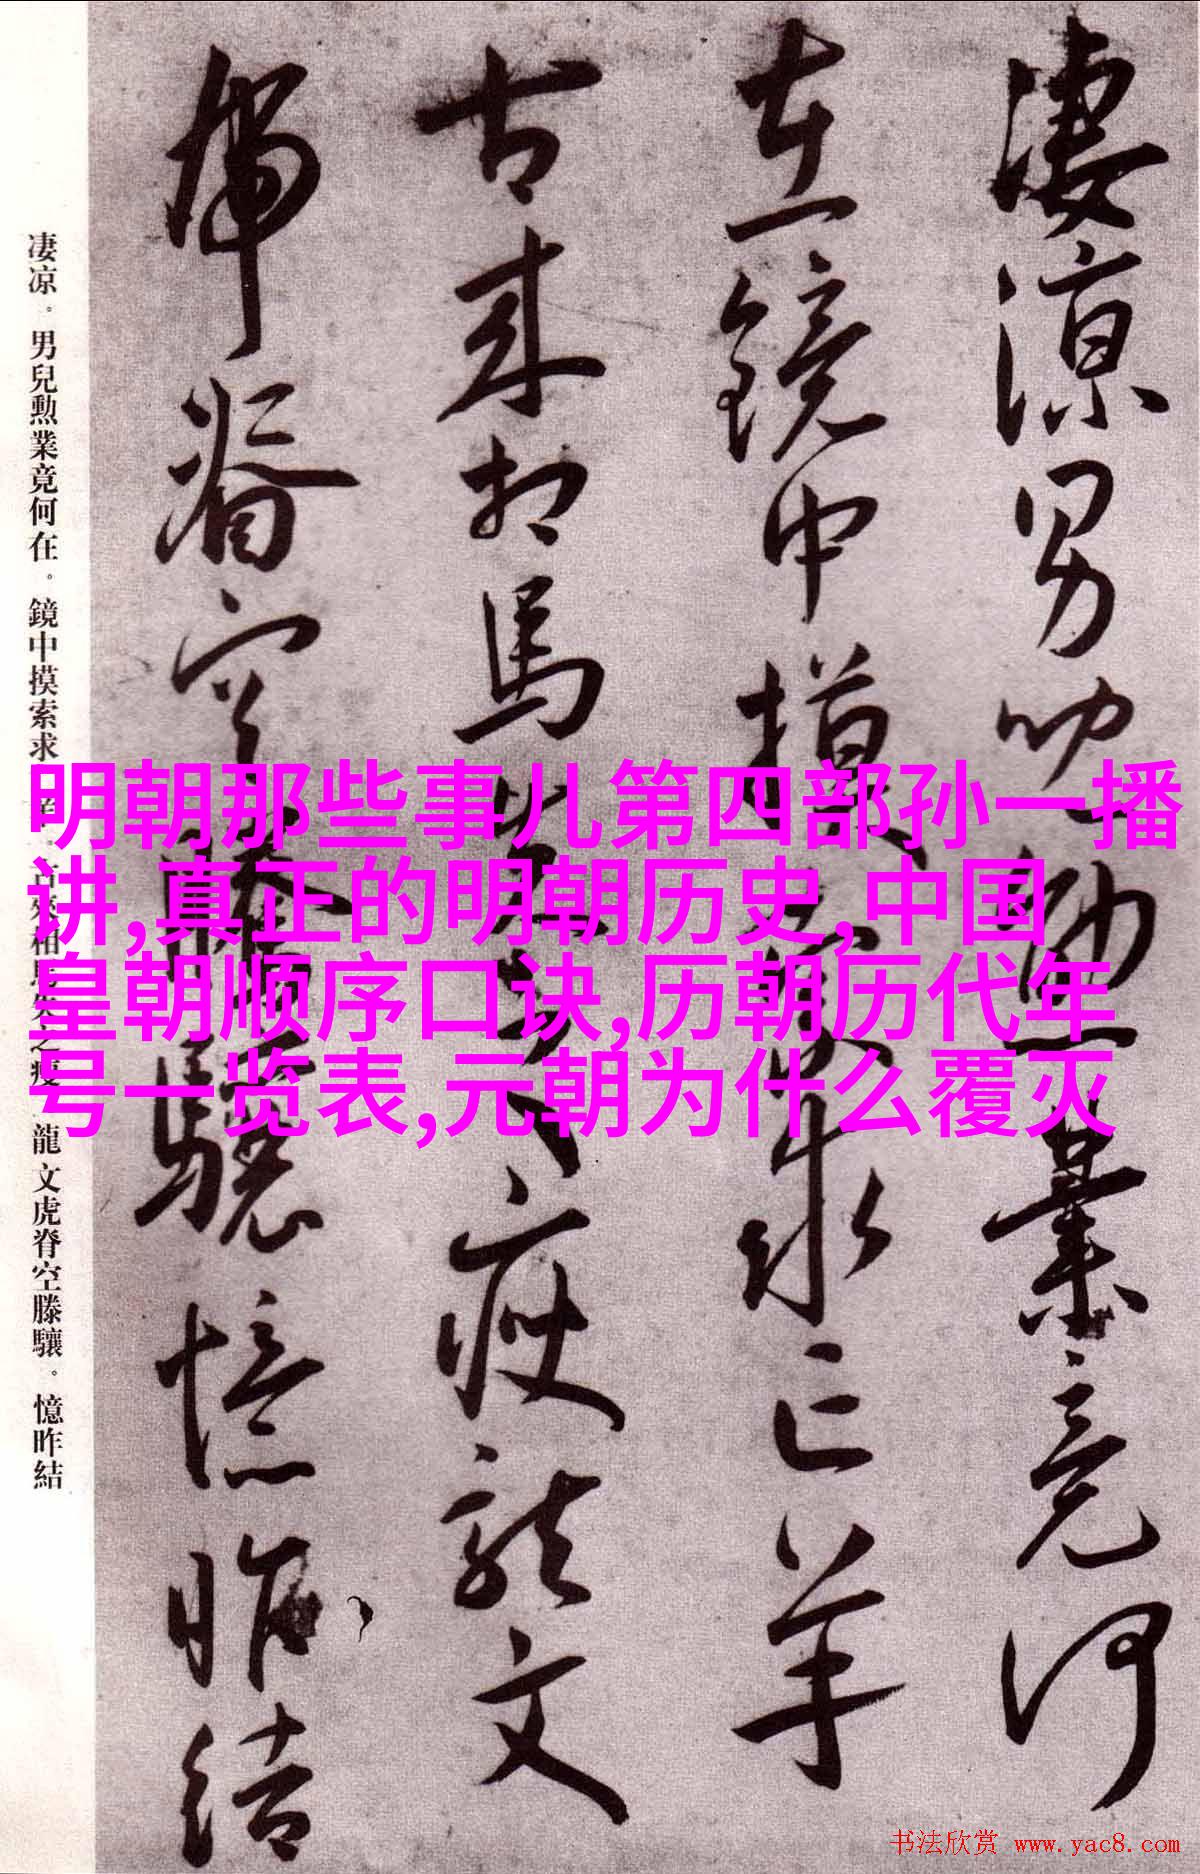 凄涼男兒勳業竟何
在鏡中摸索求亡羊
古來相馬失之瘦龍文
虎脊空騰驤憶昨結
凄凉。男兒勳業竟何在。鏡中摸索求羊。古來相馬失之瘦 龍文虎脊空騰驤。憶昨結
明朝那些事儿第四部孙一播
讲,真正的明朝历史,中国
皇朝顺序口诀,历朝历代年
号一览表,元朝为什么覆灭
书法欣赏 www.yac8.com